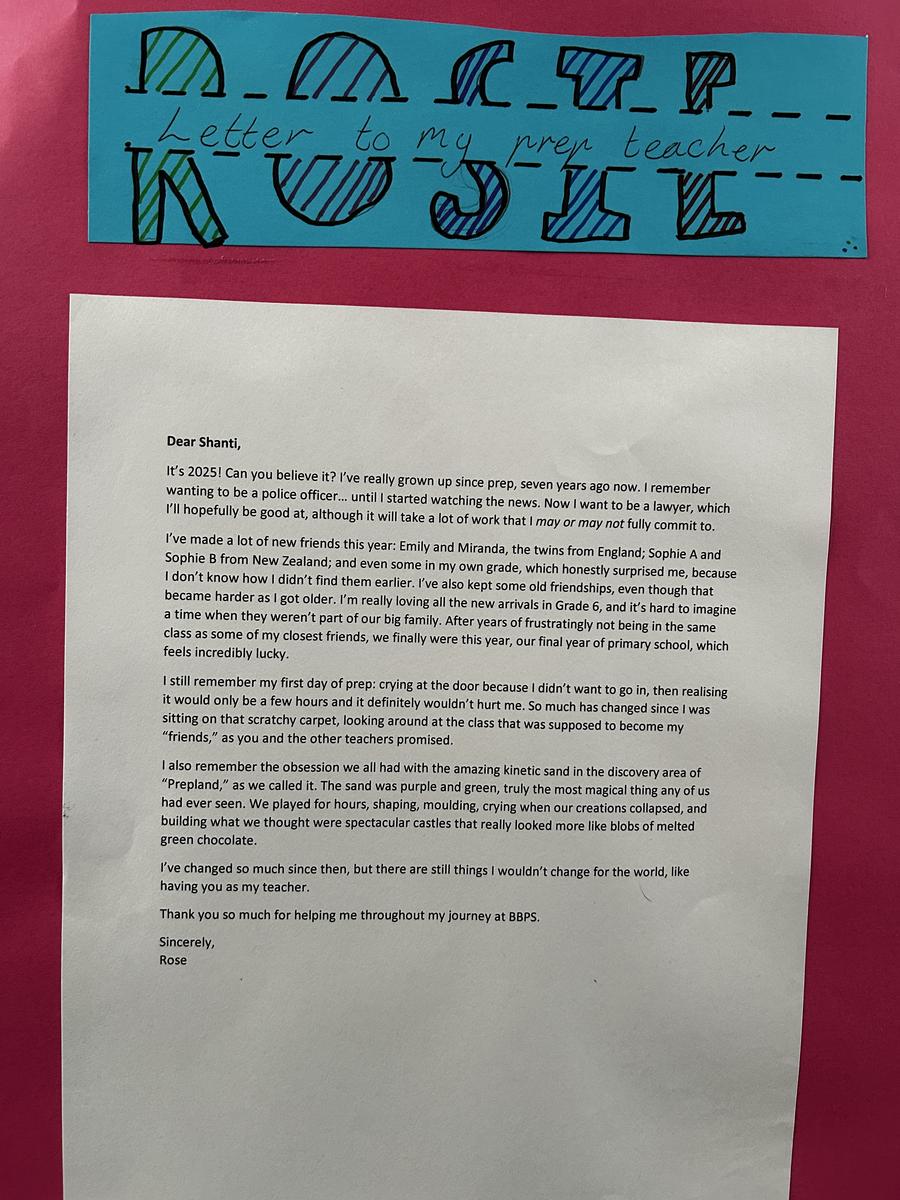 ROSIE
Letter to my prep teacher
Dear Shanti,
It's 2025! Can you believe it? I've really grown up since prep, seven years ago now. I remember
wanting to be a police officer... until I started watching the news. Now I want to be a lawyer, which
I'll hopefully be good at, although it will take a lot of work that I may or may not fully commit to.
I've made a lot of new friends this year: Emily and Miranda, the twins from England; Sophie A and
Sophie B from New Zealand; and even some in my own grade, which honestly surprised me, because
I don't know how I didn't find them earlier. I've also kept some old friendships, even though that
became harder as I got older. I'm really loving all the new arrivals in Grade 6, and it's hard to imagine
a time when they weren't part of our big family. After years of frustratingly not being in the same
class as some of my closest friends, we finally were this year, our final year of primary school, which
feels incredibly lucky.
I still remember my first day of prep: crying at the door because I didn't want to go in, then realising
it would only be a few hours and it definitely wouldn't hurt me. So much has changed since I was
sitting on that scratchy carpet, looking around at the class that was supposed to become my
“friends,” as you and the other teachers promised.
I also remember the obsession we all had with the amazing kinetic sand in the discovery area of
“Prepland,” as we called it. The sand was purple and green, truly the most magical thing any of us
had ever seen. We played for hours, shaping, moulding, crying when our creations collapsed, and
building what we thought were spectacular castles that really looked more like blobs of melted
green chocolate.
I've changed so much since then, but there are still things I wouldn't change for the world, like
having you as my teacher.
Thank you so much for helping me throughout my journey at BBPS.
Sincerely,
Rose